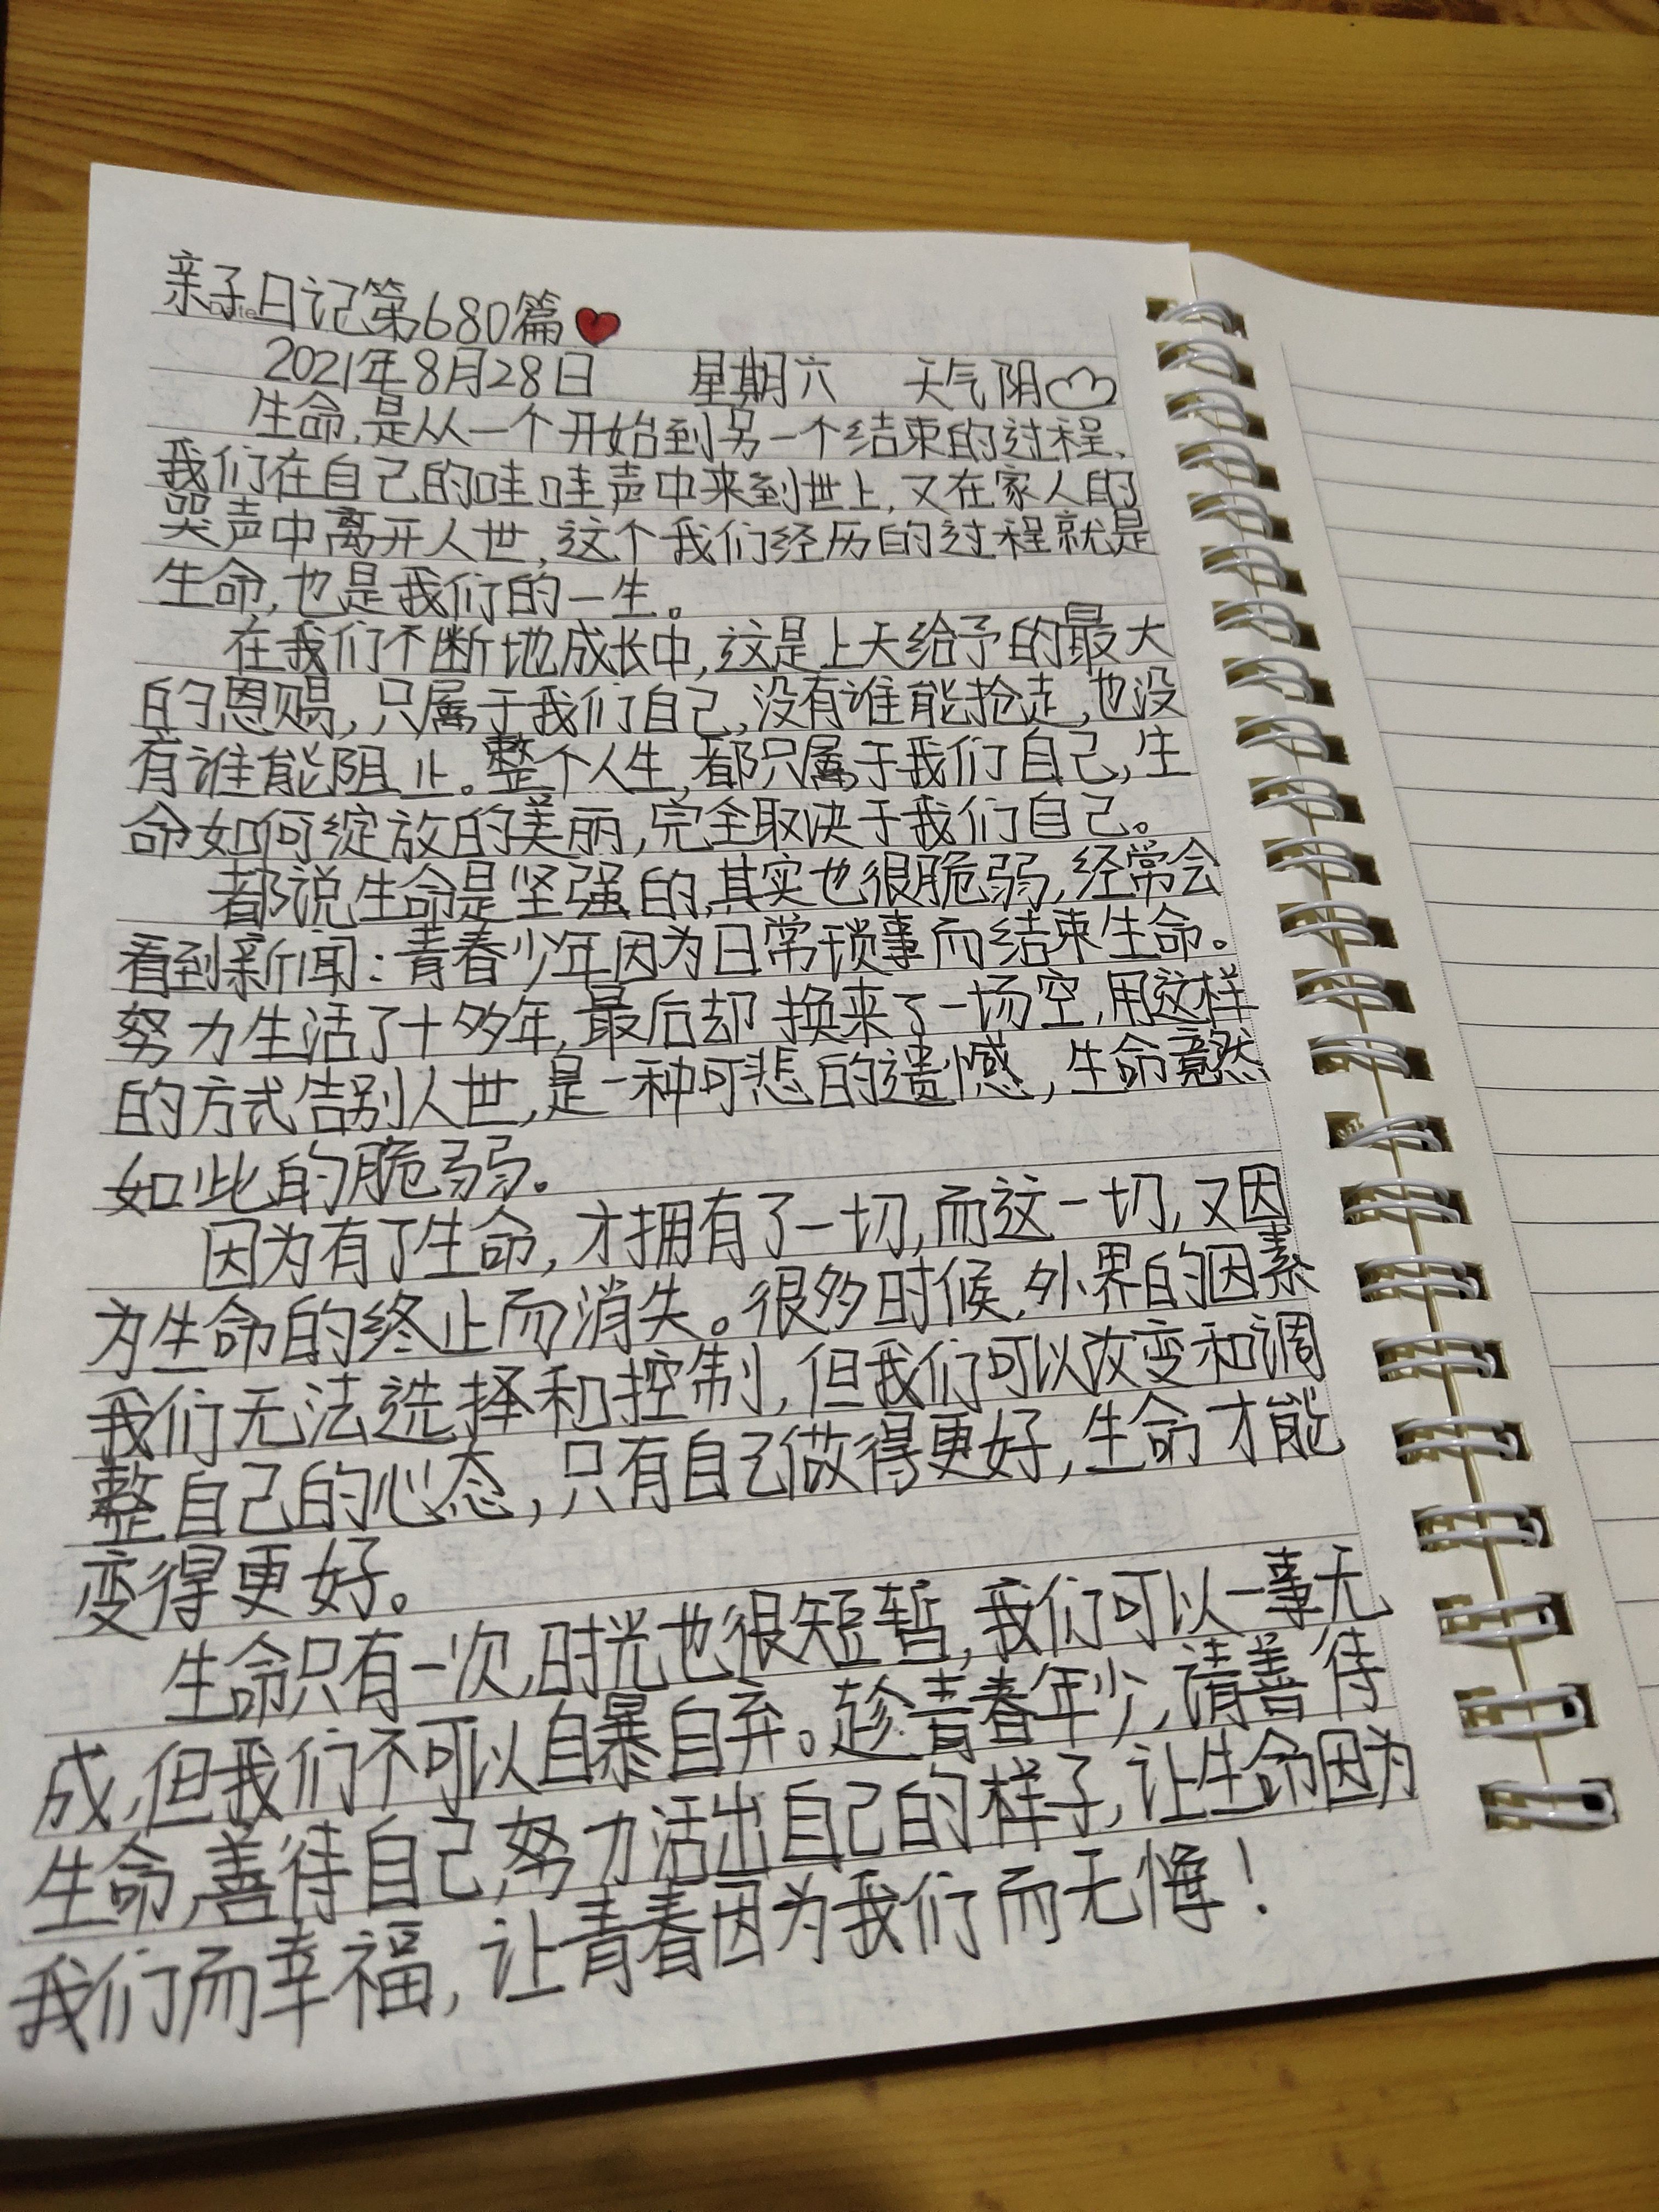 亲子日记第680篇
2021年8月28日 星期六 天气阴
生命,是从一个开始到另一个结束的过程、
我们在自己的哇哇声中来到世上,又在家人的
哭声中离开人世,这个我们经历的过程就是
生命,也是我们的一生。
在我们不断地成长中,这是上天给予的最大
的恩赐,只属于我们自己,没有谁能抢走,也没
有谁能阻止。整个人生,都只属于我们自己,生
命如何绽放的美丽,完全取决于我们自己。
都说生命是坚强的,其实也很脆弱,经常会
看到新闻:青春少年因为日常琐事而结束生命。
努力生活了十多年,最后却换来了一场空,用这样
的方式告别人世,是一种可悲的遗憾,生命竟然
如此的脆弱。
因为有了生命,才拥有了一切,而这一切,又因
为生命的终止而消失。很多时候,外界的因素
我们无法选择和控制,但我们可以改变和调
整自己的心态,只有自己做得更好,生命才能
变得更好。
生命只有一次,时光也很短暂,我们可以一事无
成,但我们不可以自暴自弃。趁青春年少,请善待
生命,善待自己,努力活出自己的样子,让生命因为
我们而幸福,让青春因为我们而无悔!